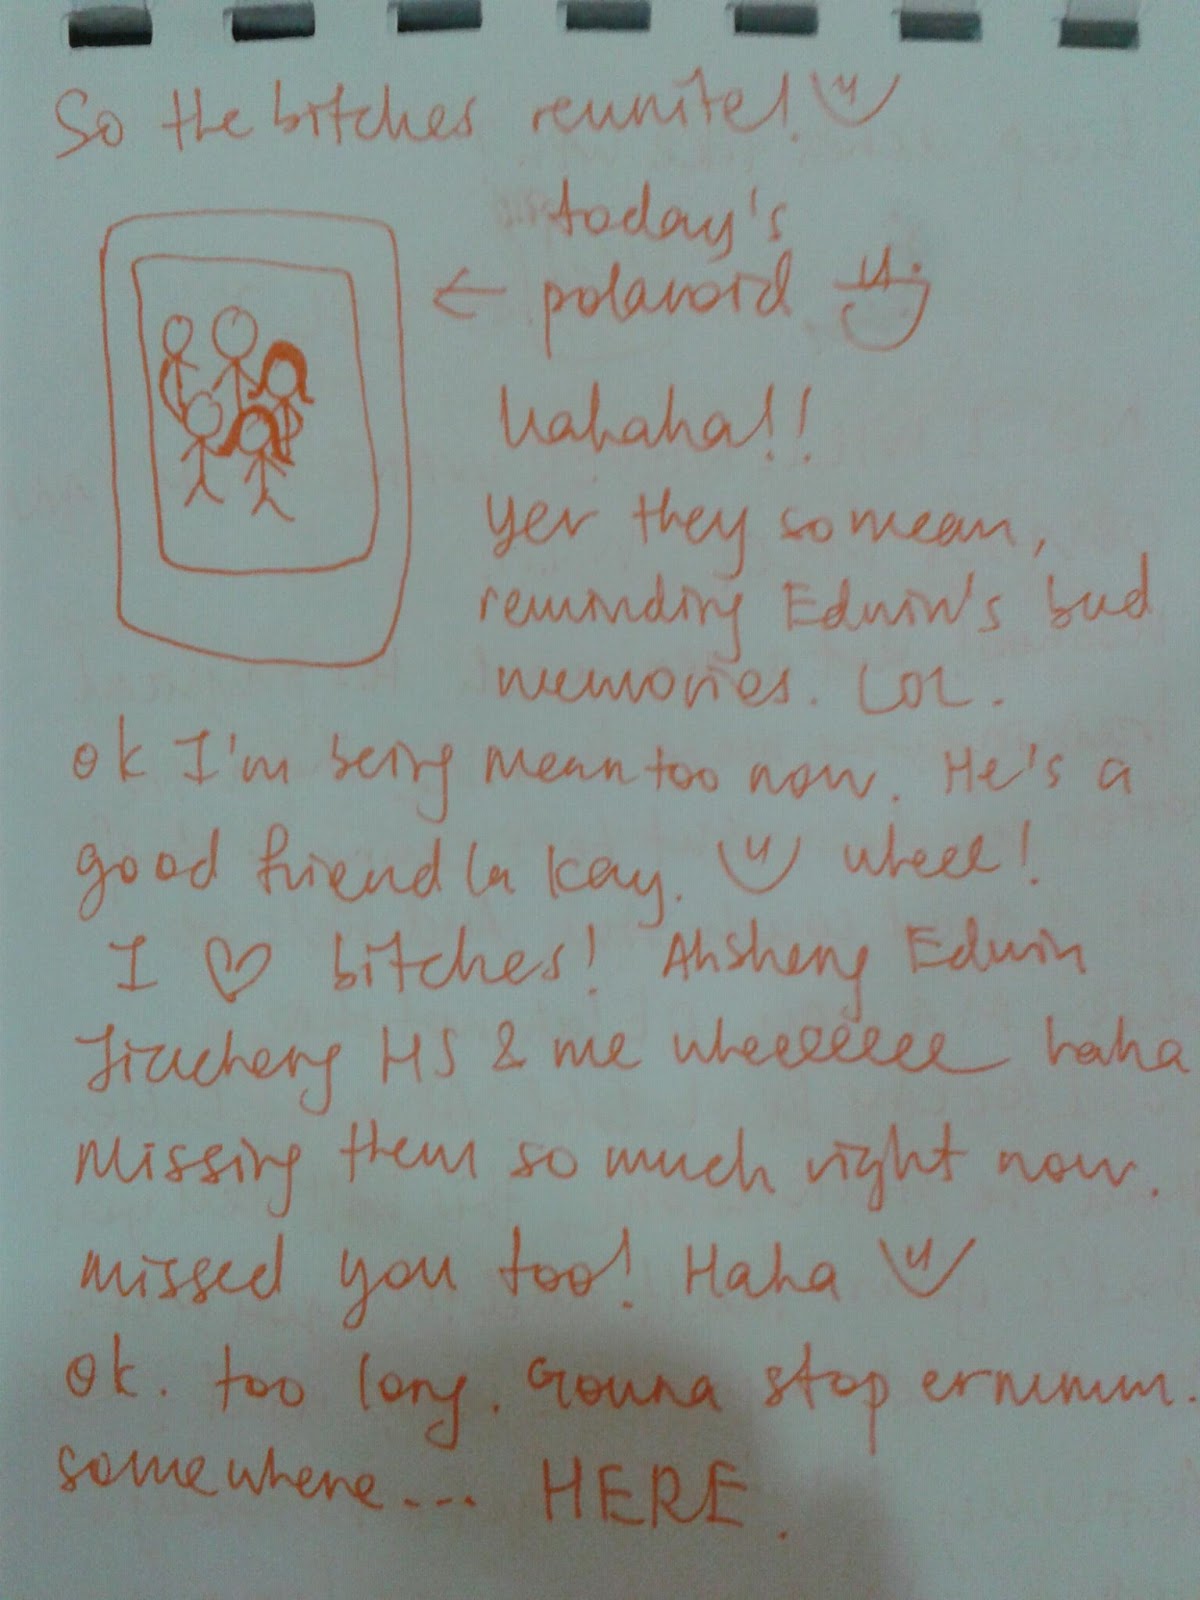 So the bitches reunite!
today's
polaroid
hahaha!!
yer they so mean,
reminding Edwin's bad
memories. LOL.
ok I'm being mean too now. He's a
good friend la kay. wheee!
I ♡ bitches! Ahsheng Edwin
HS & me wheeeeeeee haha
Missing them so much right now.
missed you too! Haha
ok. too long. Gonna stop ermmmm.
somewhere... HERE.